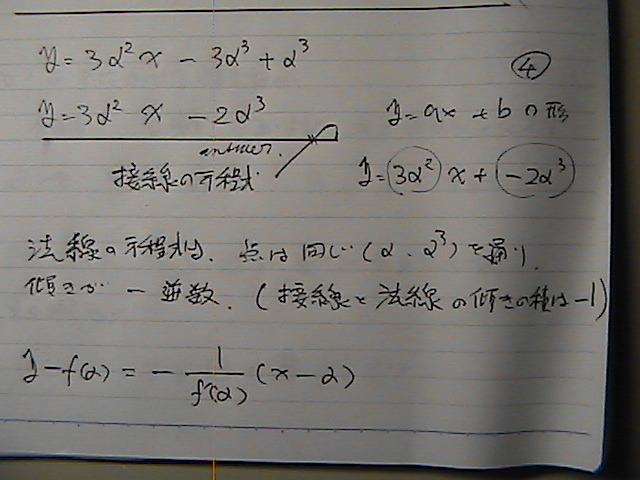 y = 3α²x - 3α³ + α³
④
y = 3α²x - 2α³
y = ax + b の形
answer.
接線の方程式
y = 3α²x + -2α³
法線の方程式は、点は同じ(α、α³)を通り、
傾きが - 逆数. (接線と法線の傾きの積は-1)
y - f(α) = - 1/f'(α) (x - α)